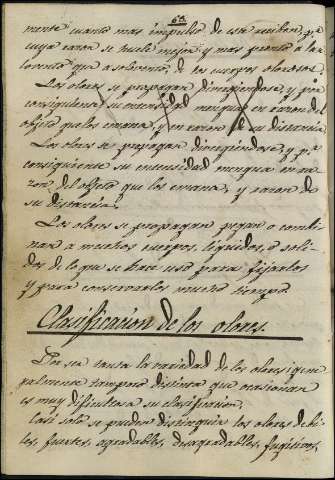 63.
mente cuanto mas impulso de este reciban, p.r
cuya razon se huele mejor, y mas pronto a la
que a sotavento, de los cuerpos olorosos.
Los olores se propagan dirigiendose, y por
consiguiente su intensidad mengua en razon del
objeto que los emana, y en razon de su distancia.
Los olores se propagan dirigiendose, y p.r
consiguiente su intensidad mengua en ra-
zon, del objeto que los emana, y razon de
su distancia.
Los olores se propagan pegan o combi-
nan a muchos cuerpos, liquidos, o soli-
dos de lo que se hace uso para fijarlos
y para conservarlos mucho tiempo.
Clasificacion de los olores.
Por ser tanta la variedad de los olores, igene
palmente tampoco distinta que ocasionan
es muy dificultosa su clasificacion.
Casi solo se pueden distinguir los olores debi-
les, fuertes, agradables, desagradables, fugitivos,